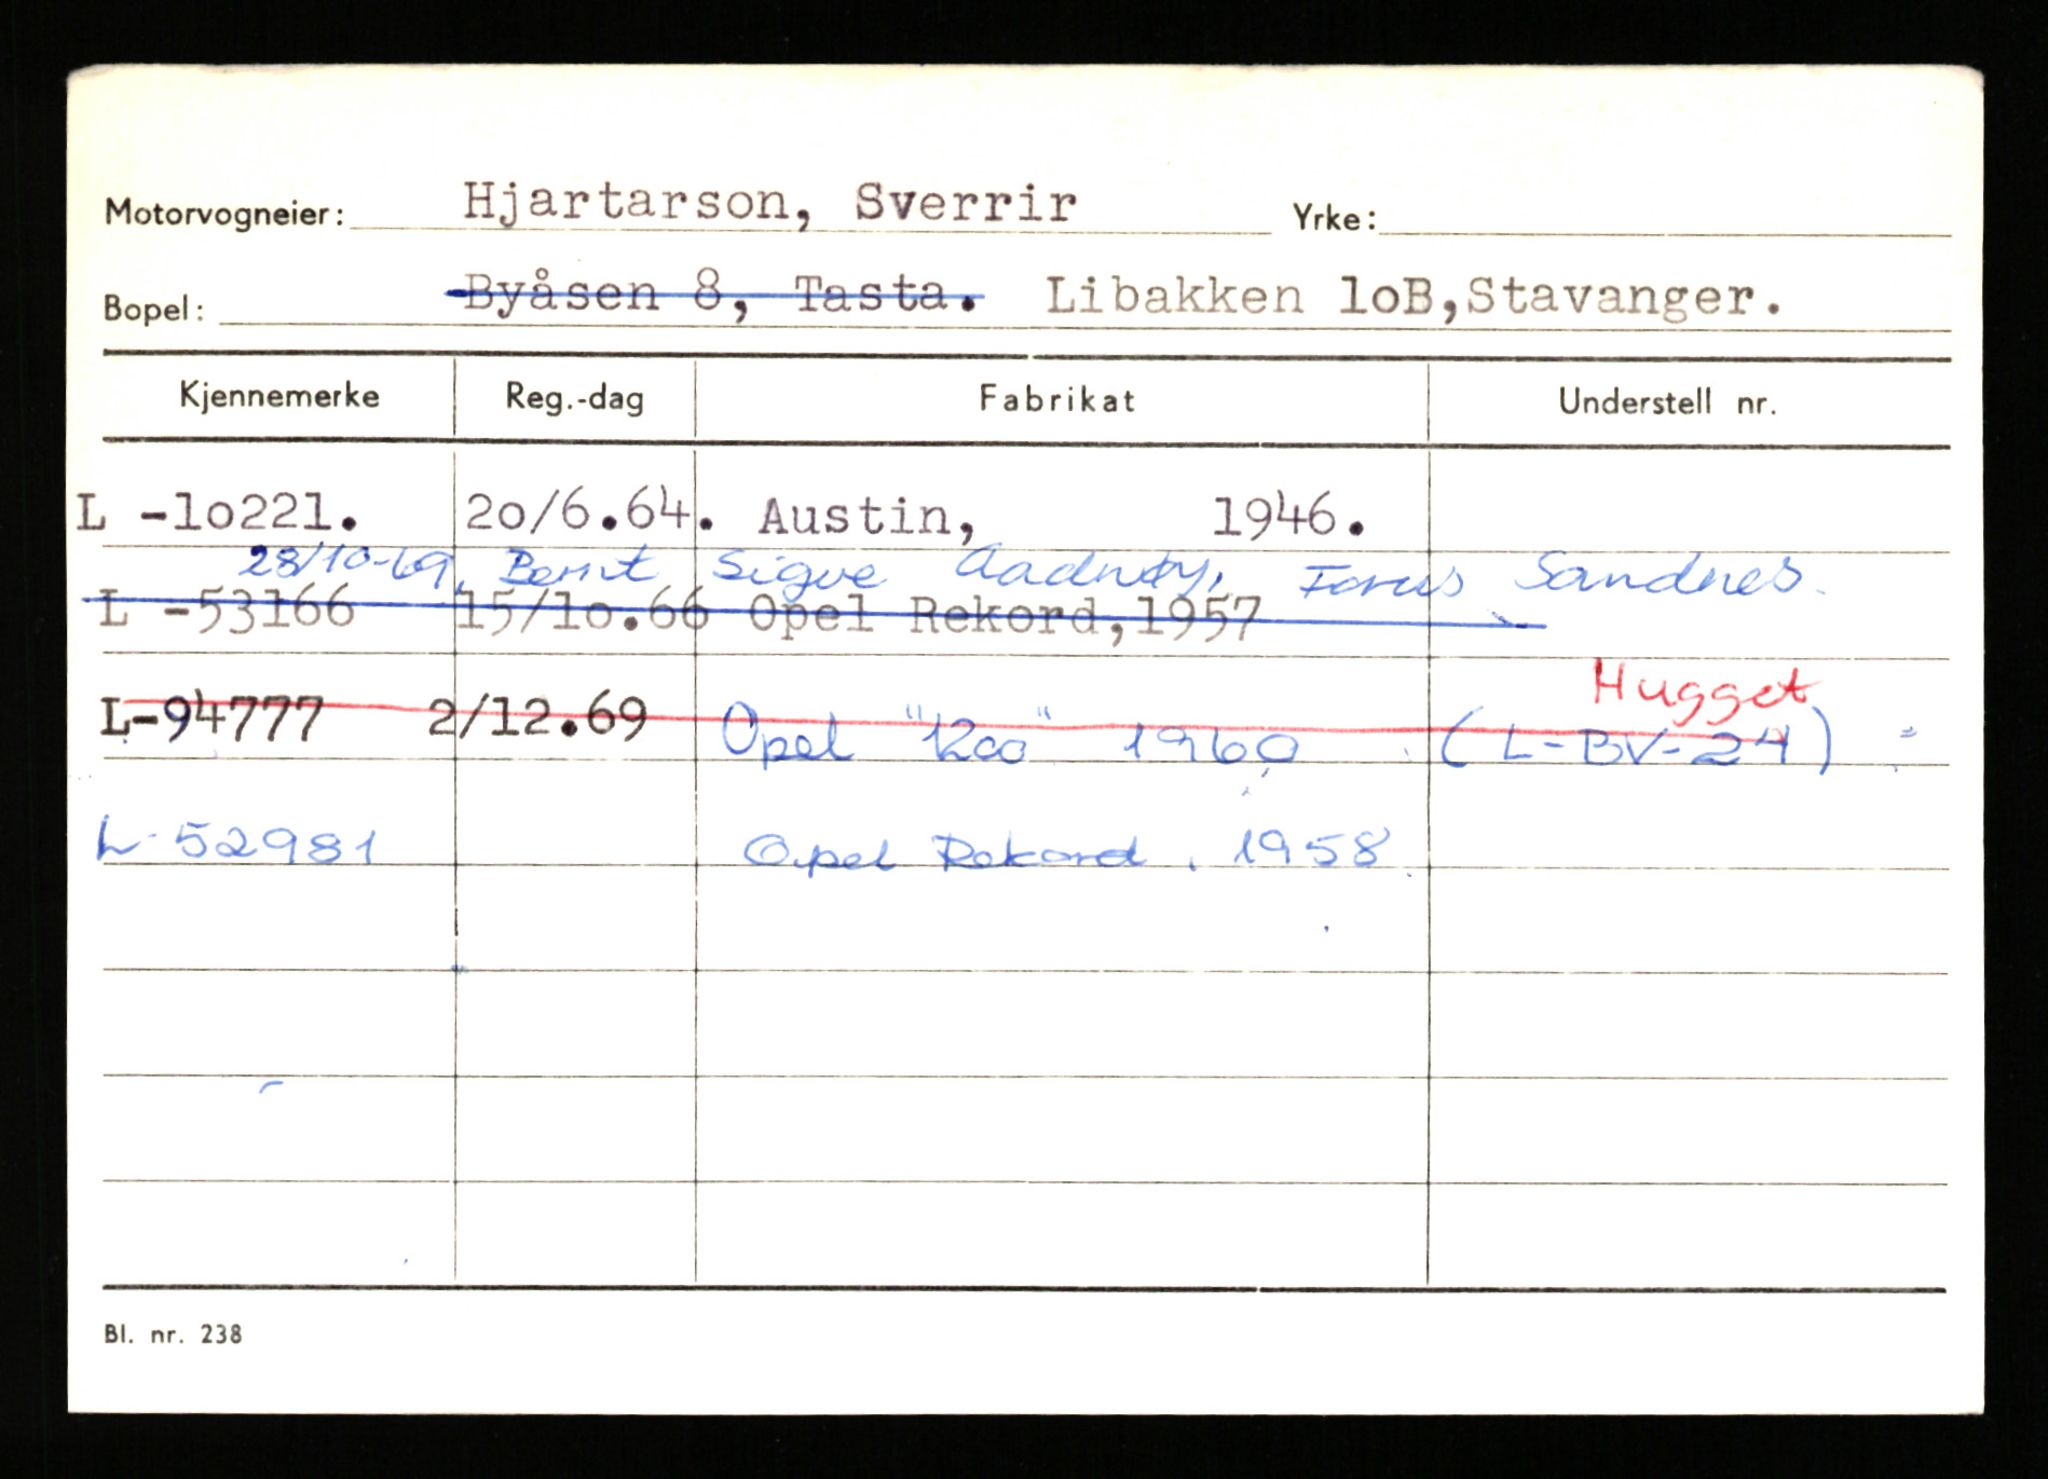 Motorvogneier: Hjartarson, Sverrir Yrke:
Bopel: Byåsen 8, Tasta. Libakken loB,Stavanger.
Kjennemerke Reg.-dag Fabrikat Understell nr.
L -lo221. 2o/6.64. Austin, 1946.
28/10-69, Bernt Sigve Aadnøy, Forus Sandnes.
L -53166 15/lo.66 Opel Rekord,1957
Hugget
L-94777 2/12.69 Opel "1200" 1960 (L-BV-24)
L-52981 Opel Rekord, 1958
Bl. nr. 238